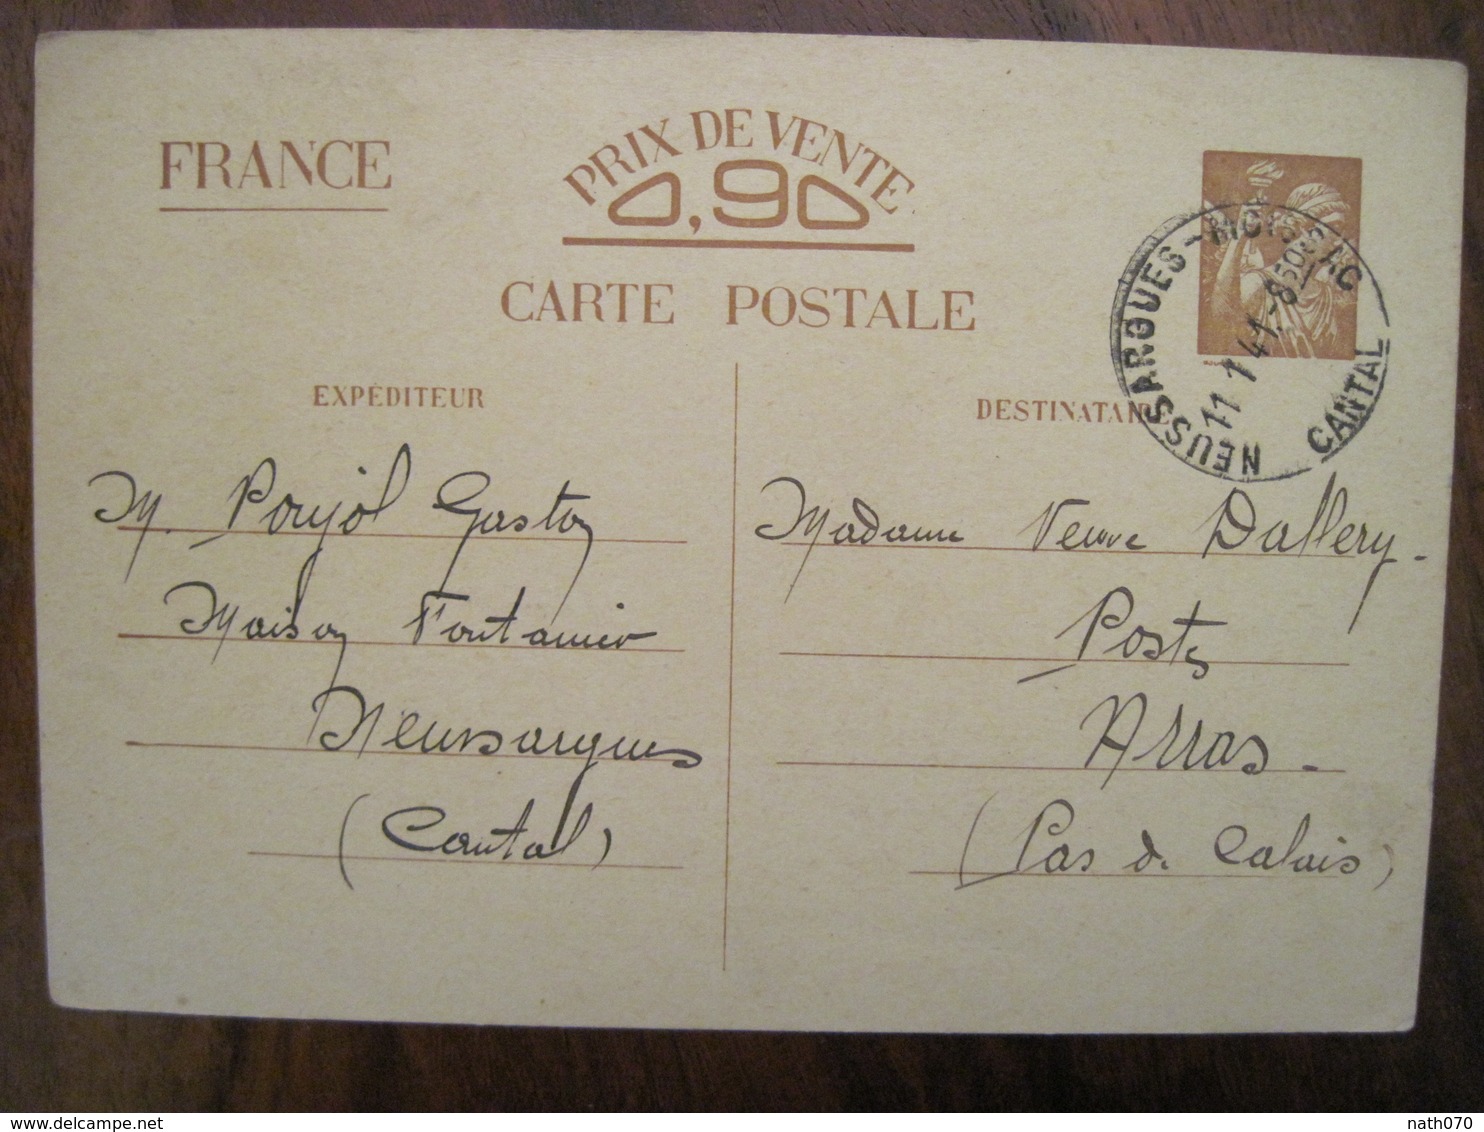 FRANCE
PRIX DE VENTE
0,90
CARTE POSTALE
NEUSSARGUES-MOISSAC
11 1 41
CANTAL
EXPÉDITEUR
M. Poujol Gaston
Maison Fontanier
Neussargues
(Cantal)
DESTINATAIRE
Madame Veuve Dallery.
Postes
Arras.
(Pas de Calais)
delcampe.net
nath070